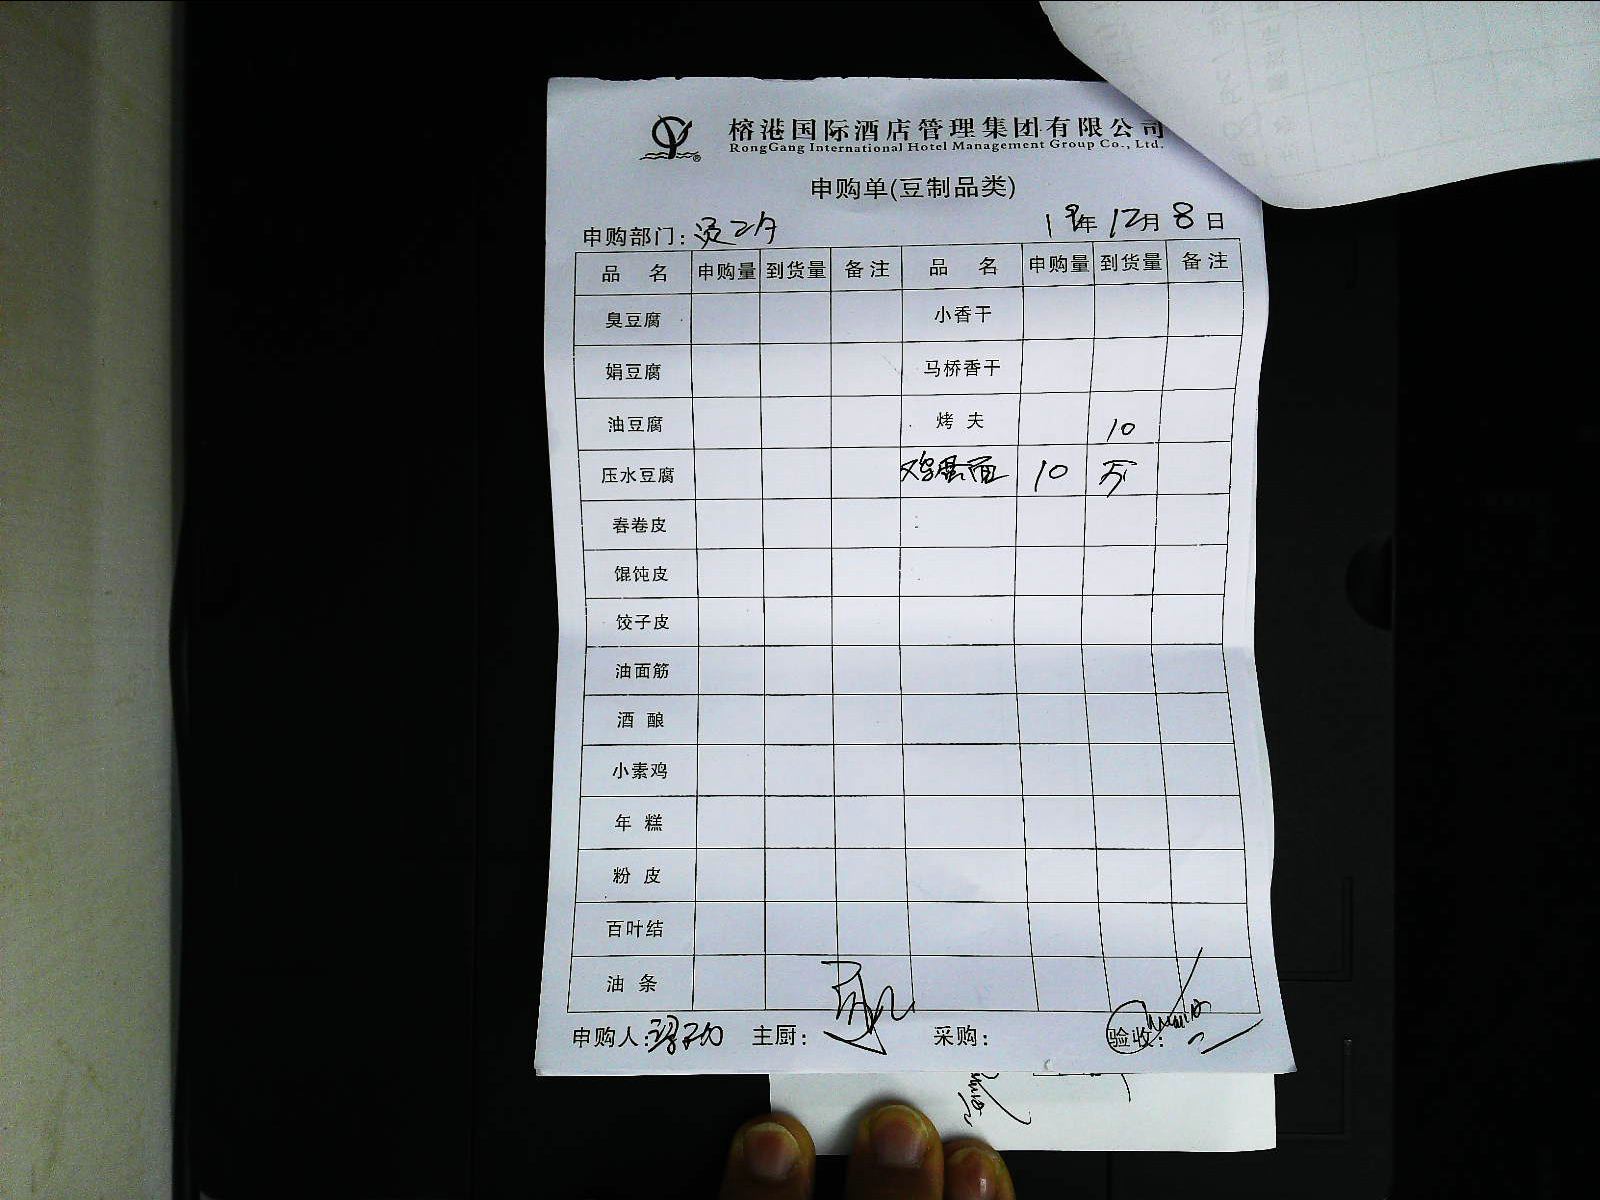 榕港国际酒店管理集团有限公司
RongGang International Hotel Management Group Co., Ltd.
申购单(豆制品类)
申购部门: 19年12月8日
品 名 申购量 到货量 备注 品 名 申购量 到货量 备注
臭豆腐 小香干
娟豆腐 马桥香干
油豆腐 烤夫 10
压水豆腐 鸡蛋面 10
春卷皮
馄饨皮
饺子皮
油面筋
酒酿
小素鸡
年糕
粉皮
百叶结
油条
申购人: 主厨: 采购: 验收: